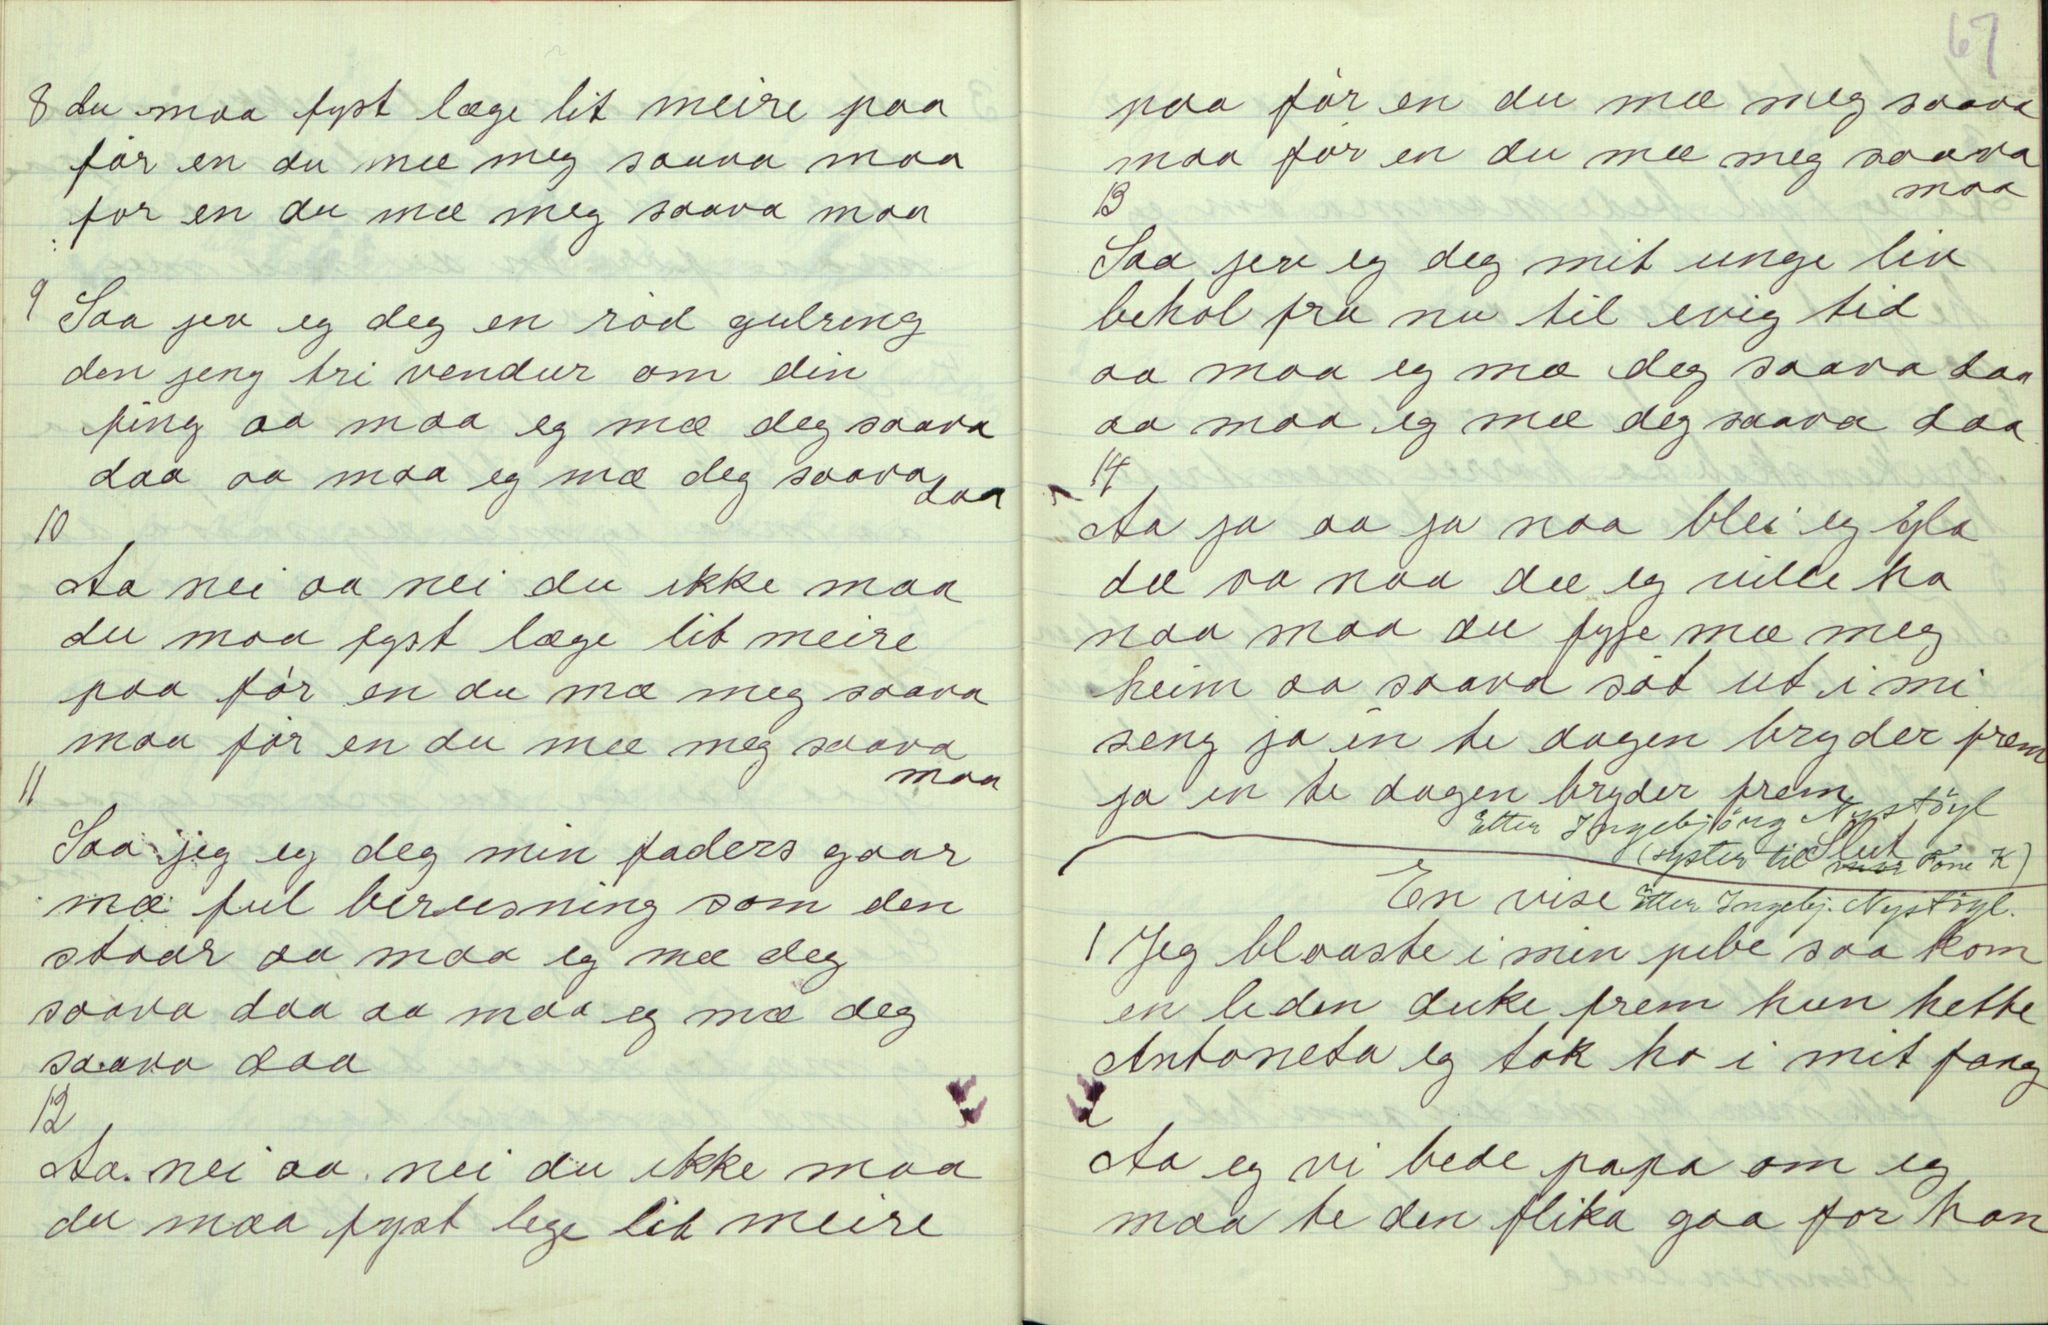 8 du maa fyst læge lit meire paa
før en du mæ meg saava maa
for en du mæ meg saava maa
9 Saa jev eg deg en rød gulring
den jeng tri vendur om din
fing aa maa eg mæ deg saava
daa aa maa eg mæ deg saava
daa
10
Aa nei aa nei du ikke maa
du maa fyst læge lit meire
paa før en du mæ meg saava
maa før en du mæ meg saava
maa
11
Saa jeg eg deg min faders gaar
mæ ful berusning som den
staar aa maa eg mæ deg
saava daa aa maa eg mæ deg
saava daa
12
Aa nei aa nei du ikke maa
du maa fyst lege lit meire
67
paa før en du mæ meg saava
maa før en du mæ meg saava
maa
13
Saa jev eg deg mit unge liv
behol fra nu til evig tid
aa maa eg mæ deg saava daa
aa maa eg mæ deg saava daa
14
Aa ja aa ja naa blei eg gla
dæ va naa dæ eg ville ha
naa maa du fyje mæ meg
heim aa saava søt ut i mi
seng ja en te dagen bryder frem
ja en te dagen bryder frem
Etter Ingebjörg Nystöyl
(syster til Tone K)
Slut
En vise Etter Ingebj. Nystöyl.
1 Jeg blaaste i min pibe saa kom
en liden duke frem hun hette
Antoneta eg tok ho i mit fang
2
Aa eg vi bede papa om eg
maa te den flika gaa for han